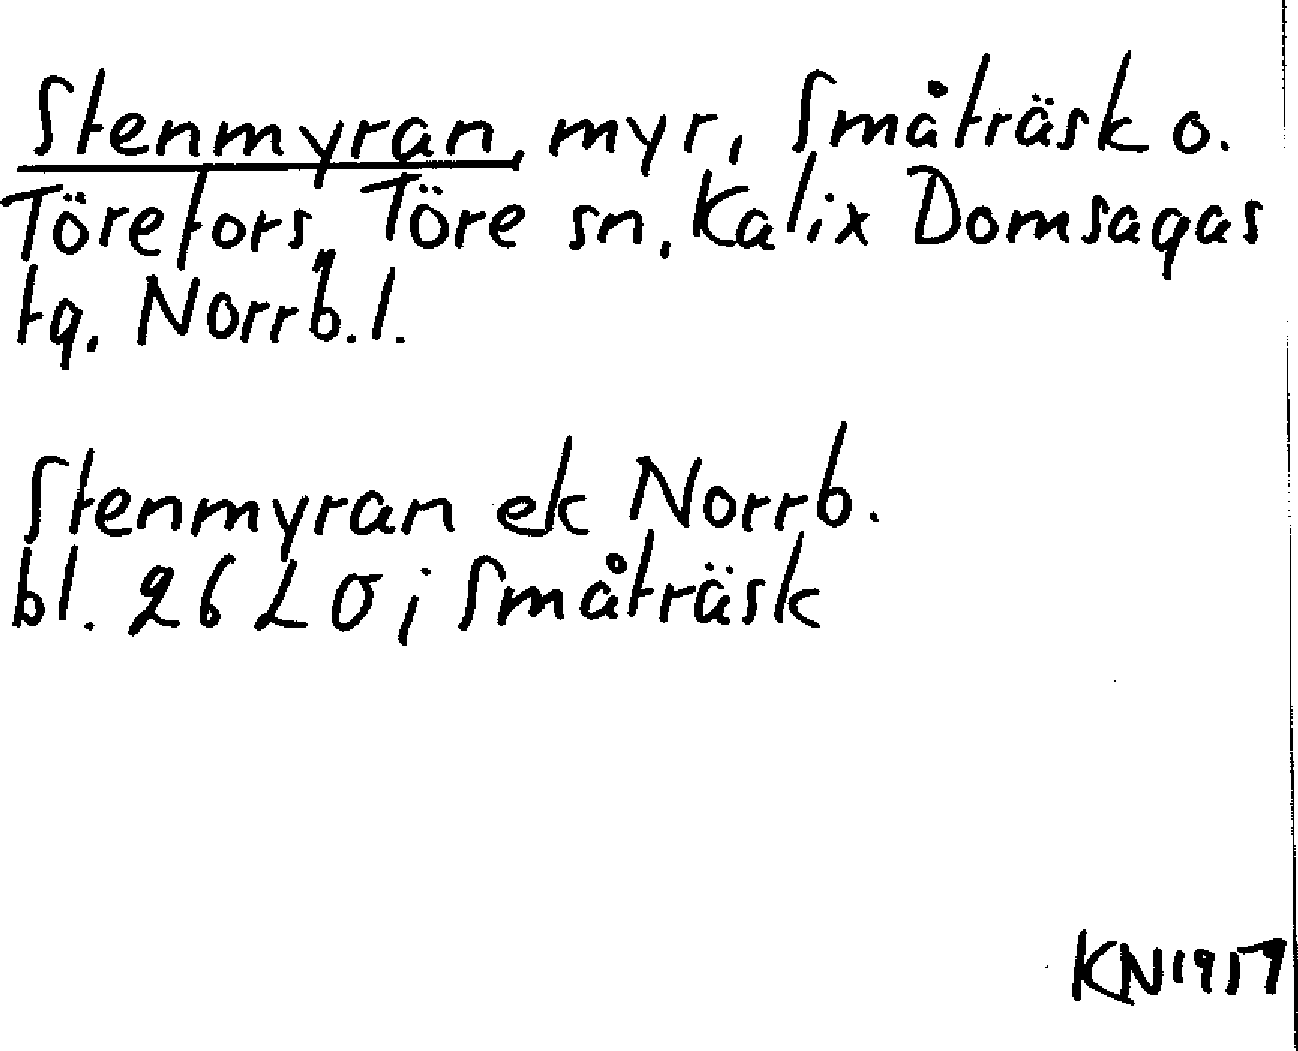 Stenmyran, myr, Småträsk o.
Törefors, Töre sn, Kalix Domsagas
tg. Norrb. l.
Stenmyran ek Norrb.
bl. 26 L O; Småträsk
KN 1917